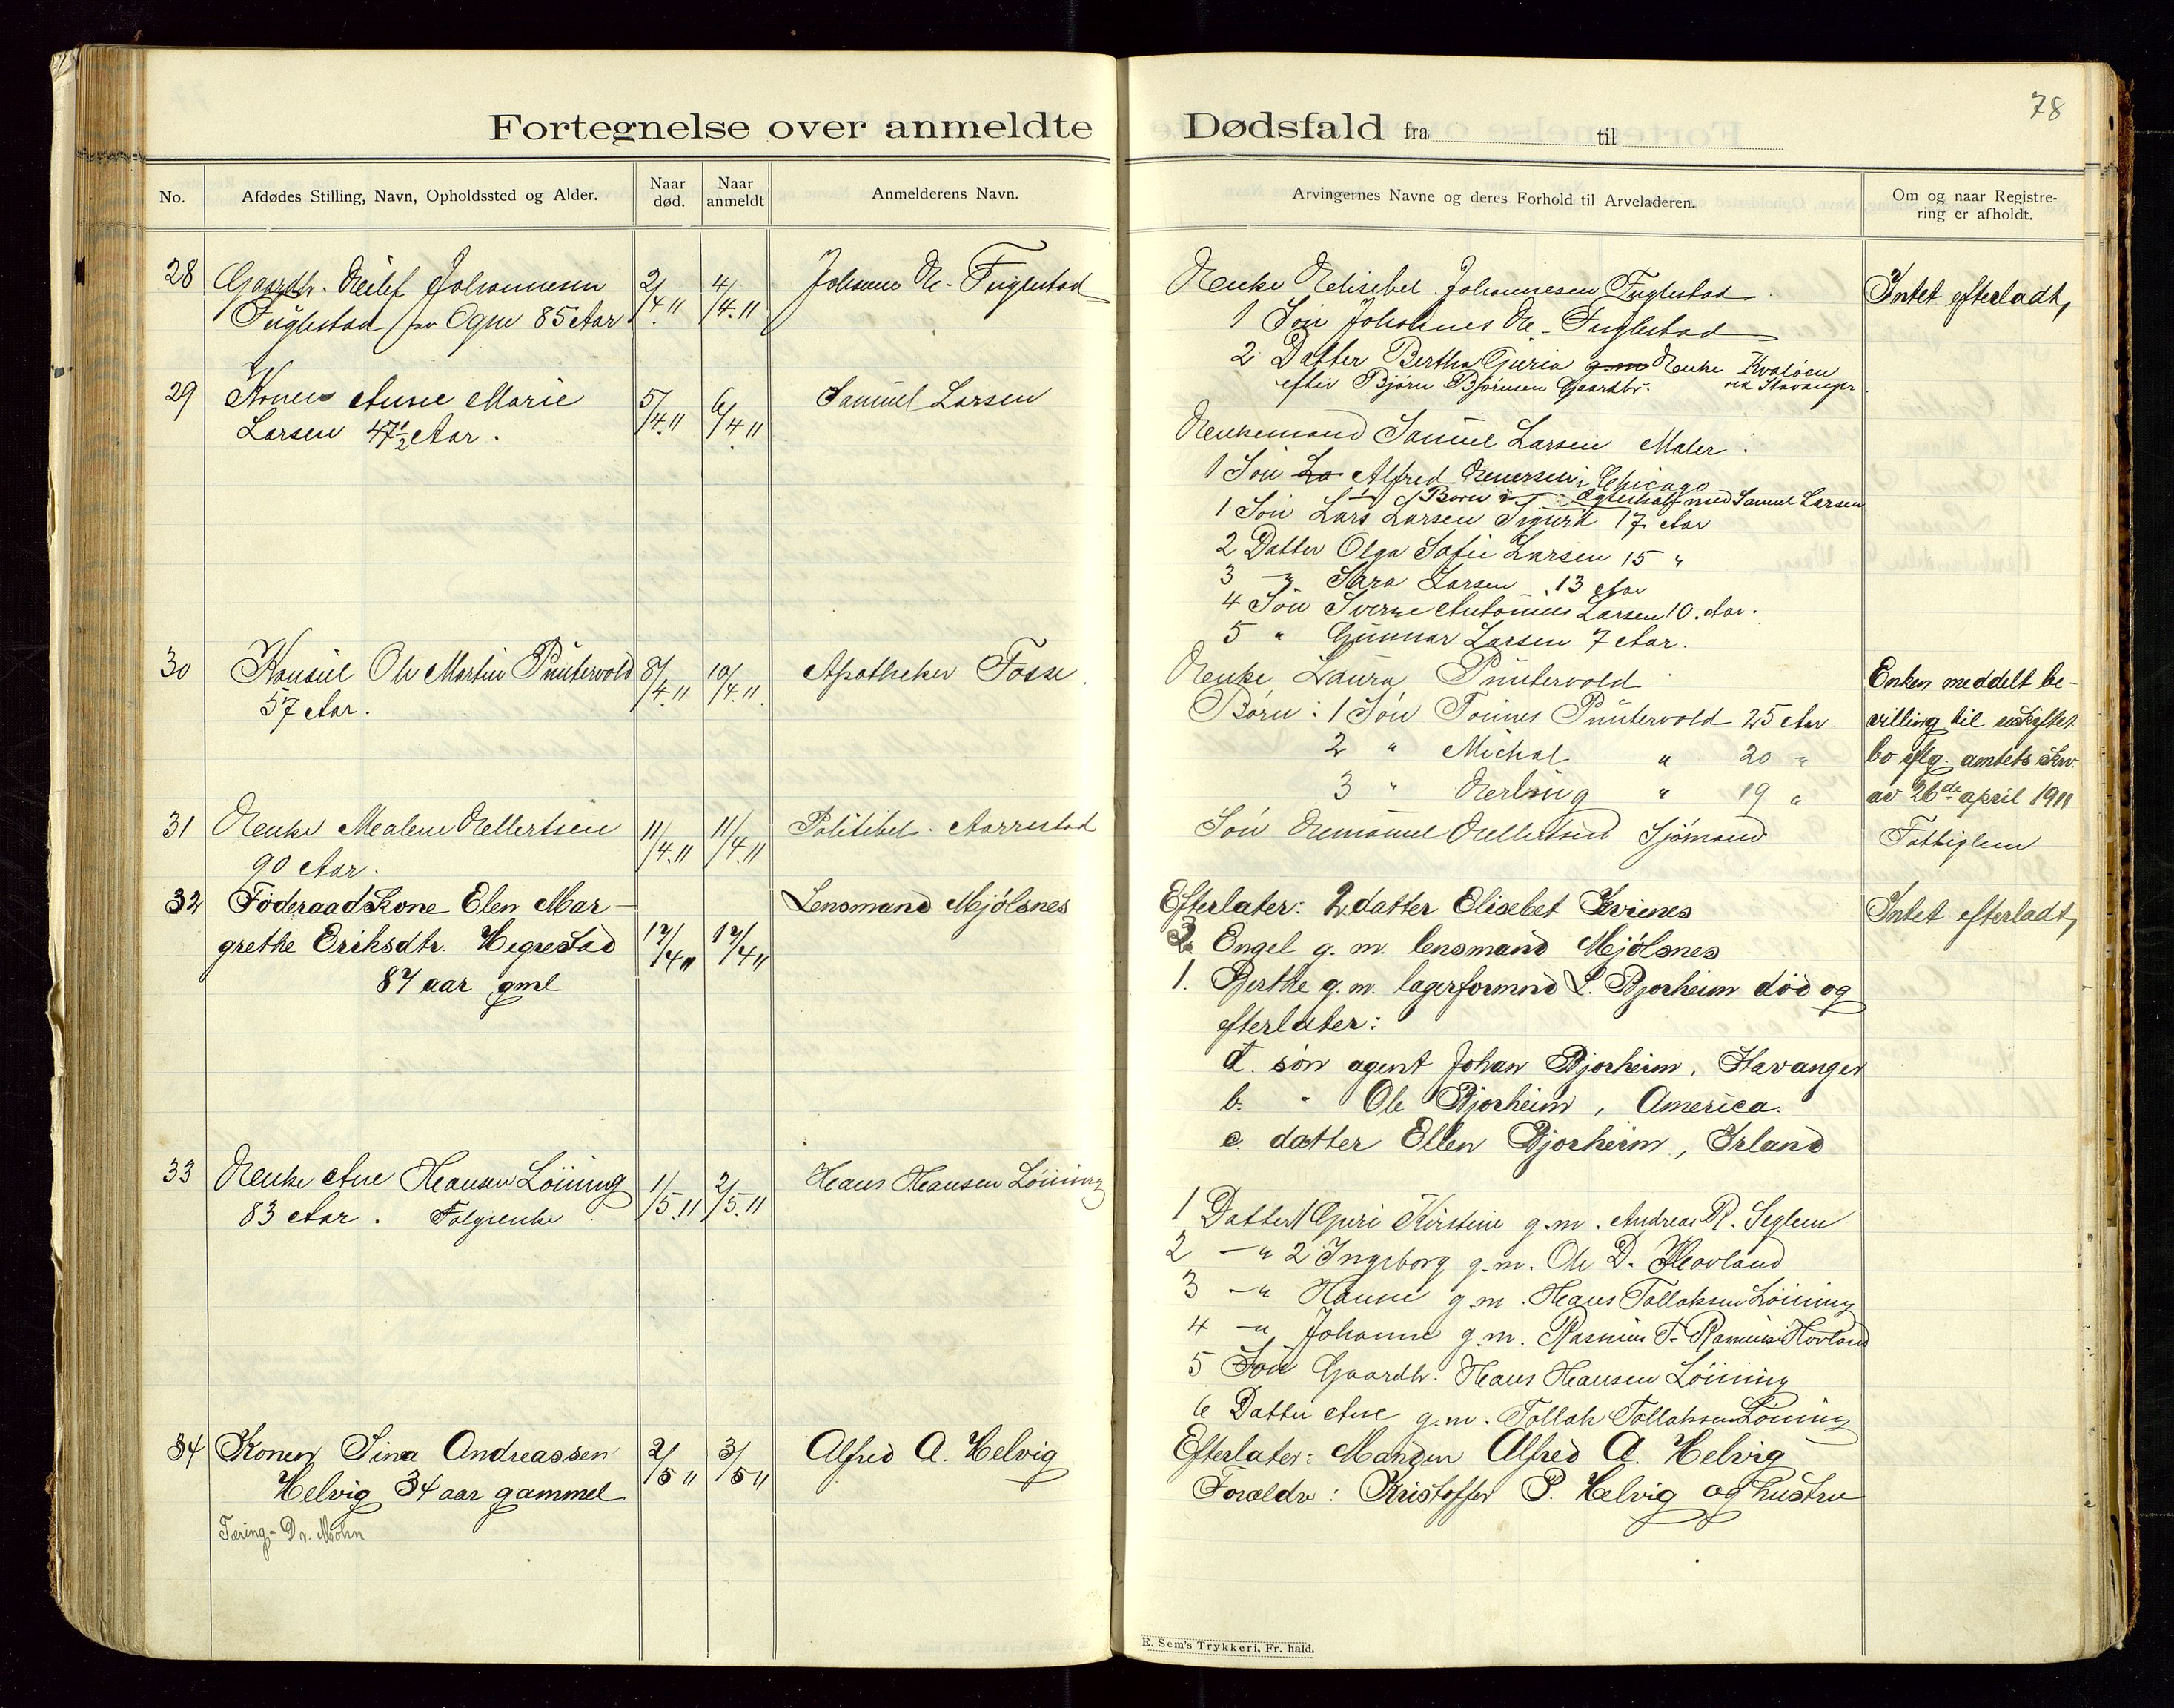 78
Fortegnelse over anmeldte Dødsfald fra til
No.
Afdødes Stilling, Navn, Opholdssted og Alder.
Naar død.
Naar anmeldt
Anmelderens Navn.
Arvingernes Navne og deres Forhold til Arveladeren.
Om og naar Registrering er afholdt.
28 Gaardb. Eilef Johannesen 2/4 11 4/4 11 Johannes E. Fuglestad
Fuglestad Ogne 85 Aar
Enke Elisebet Johannesen Fuglestad
Intet efterladt,
1 Søn Johannes E. Fuglestad
2 Datter Bertha Guria g.m. Enke Kvaløen
efter Bjørn Bjørnsen Gaardbr. ved Stavanger
29 Konen Anne Marie 5/4 11 6/4 11 Samuel Larsen
Larsen 47 1/2 Aar.
Enkemand Samuel Larsen Maler.
1 Søn La Alfred Enersen i Chicago
Børn i Ægteskab med Samuel Larsen
1 Søn Lars Larsen Sigurd 17 Aar
2 Datter Olga Sofie Larsen 15 "
3 —" Sara Larsen 13 Aar
4 Søn Sverre Antonius Larsen 10. Aar.
5 " Gunnar Larsen 7 Aar.
30 Konsul Ole Martin Puntervold 8/4 11 10/4 11 Apotheker Fosse
57 Aar.
Enke Laura Puntervold
Børn: 1 Søn Tønnes Puntervold 25 Aar.
2 " Michal " 20 "
3 " Erling " 19 "
Enken meddelt be-
villing til uskiftet
bo iflg. amtets skr.
av 26de april 1911
31 Enke Malene Ellertsen 11/4 11 11/4 11 Politibet. Aarrestad
90 Aar.
Søn Emanuel Ellertsen Sjømand
Fattiglem
32 Føderaadskone Elen Mar- Lensmand Mjølsnes
grethe Eriksdtr. Hegrestad 17/4 11 17/4 11
87 aar gml
Efterlater: 2 datter Elisebet Kvienes
Intet efterladt,
3. Engel g. m. lensmand Mjølsnes
1. Berthe g. m. lagerformnd L. Bjorheim død og
efterlater:
a. søn agent Johan Bjorheim, Stavanger
b. " Ole Bjorheim, America.
c. datter Ellen Bjorheim, Irland
33 Enke Ane Hansen Løining 1/5. 11 2/5. 11 Hans Hansen Løining
83 Aar. Følgeenke
1 Datter 1 Guri Kirstine g. m. Andreas R. Seglem
2 —" 2 Ingeborg g. m. Ole D. Hovland
3 —" Hanne g. m. Hans Tollaksen Løining
4 —" Johanne g. m. Rasmus T. Hovland
5 Søn Gaardb. Hans Hansen Løining
6 Datter Ane g. m. Tollak Tollaksen Løining
34 Konen Sina Andreassen 2/5 11 3/5 11 Alfred A. Helvig
Helvig 34 aar gammel
Tæring - Dr. Mohn
Efterlater: Manden Alfred A. Helvig
Forældre: Kristoffer P. Helvig og hustru
E. Sem's Trykkeri, Fr. hald.